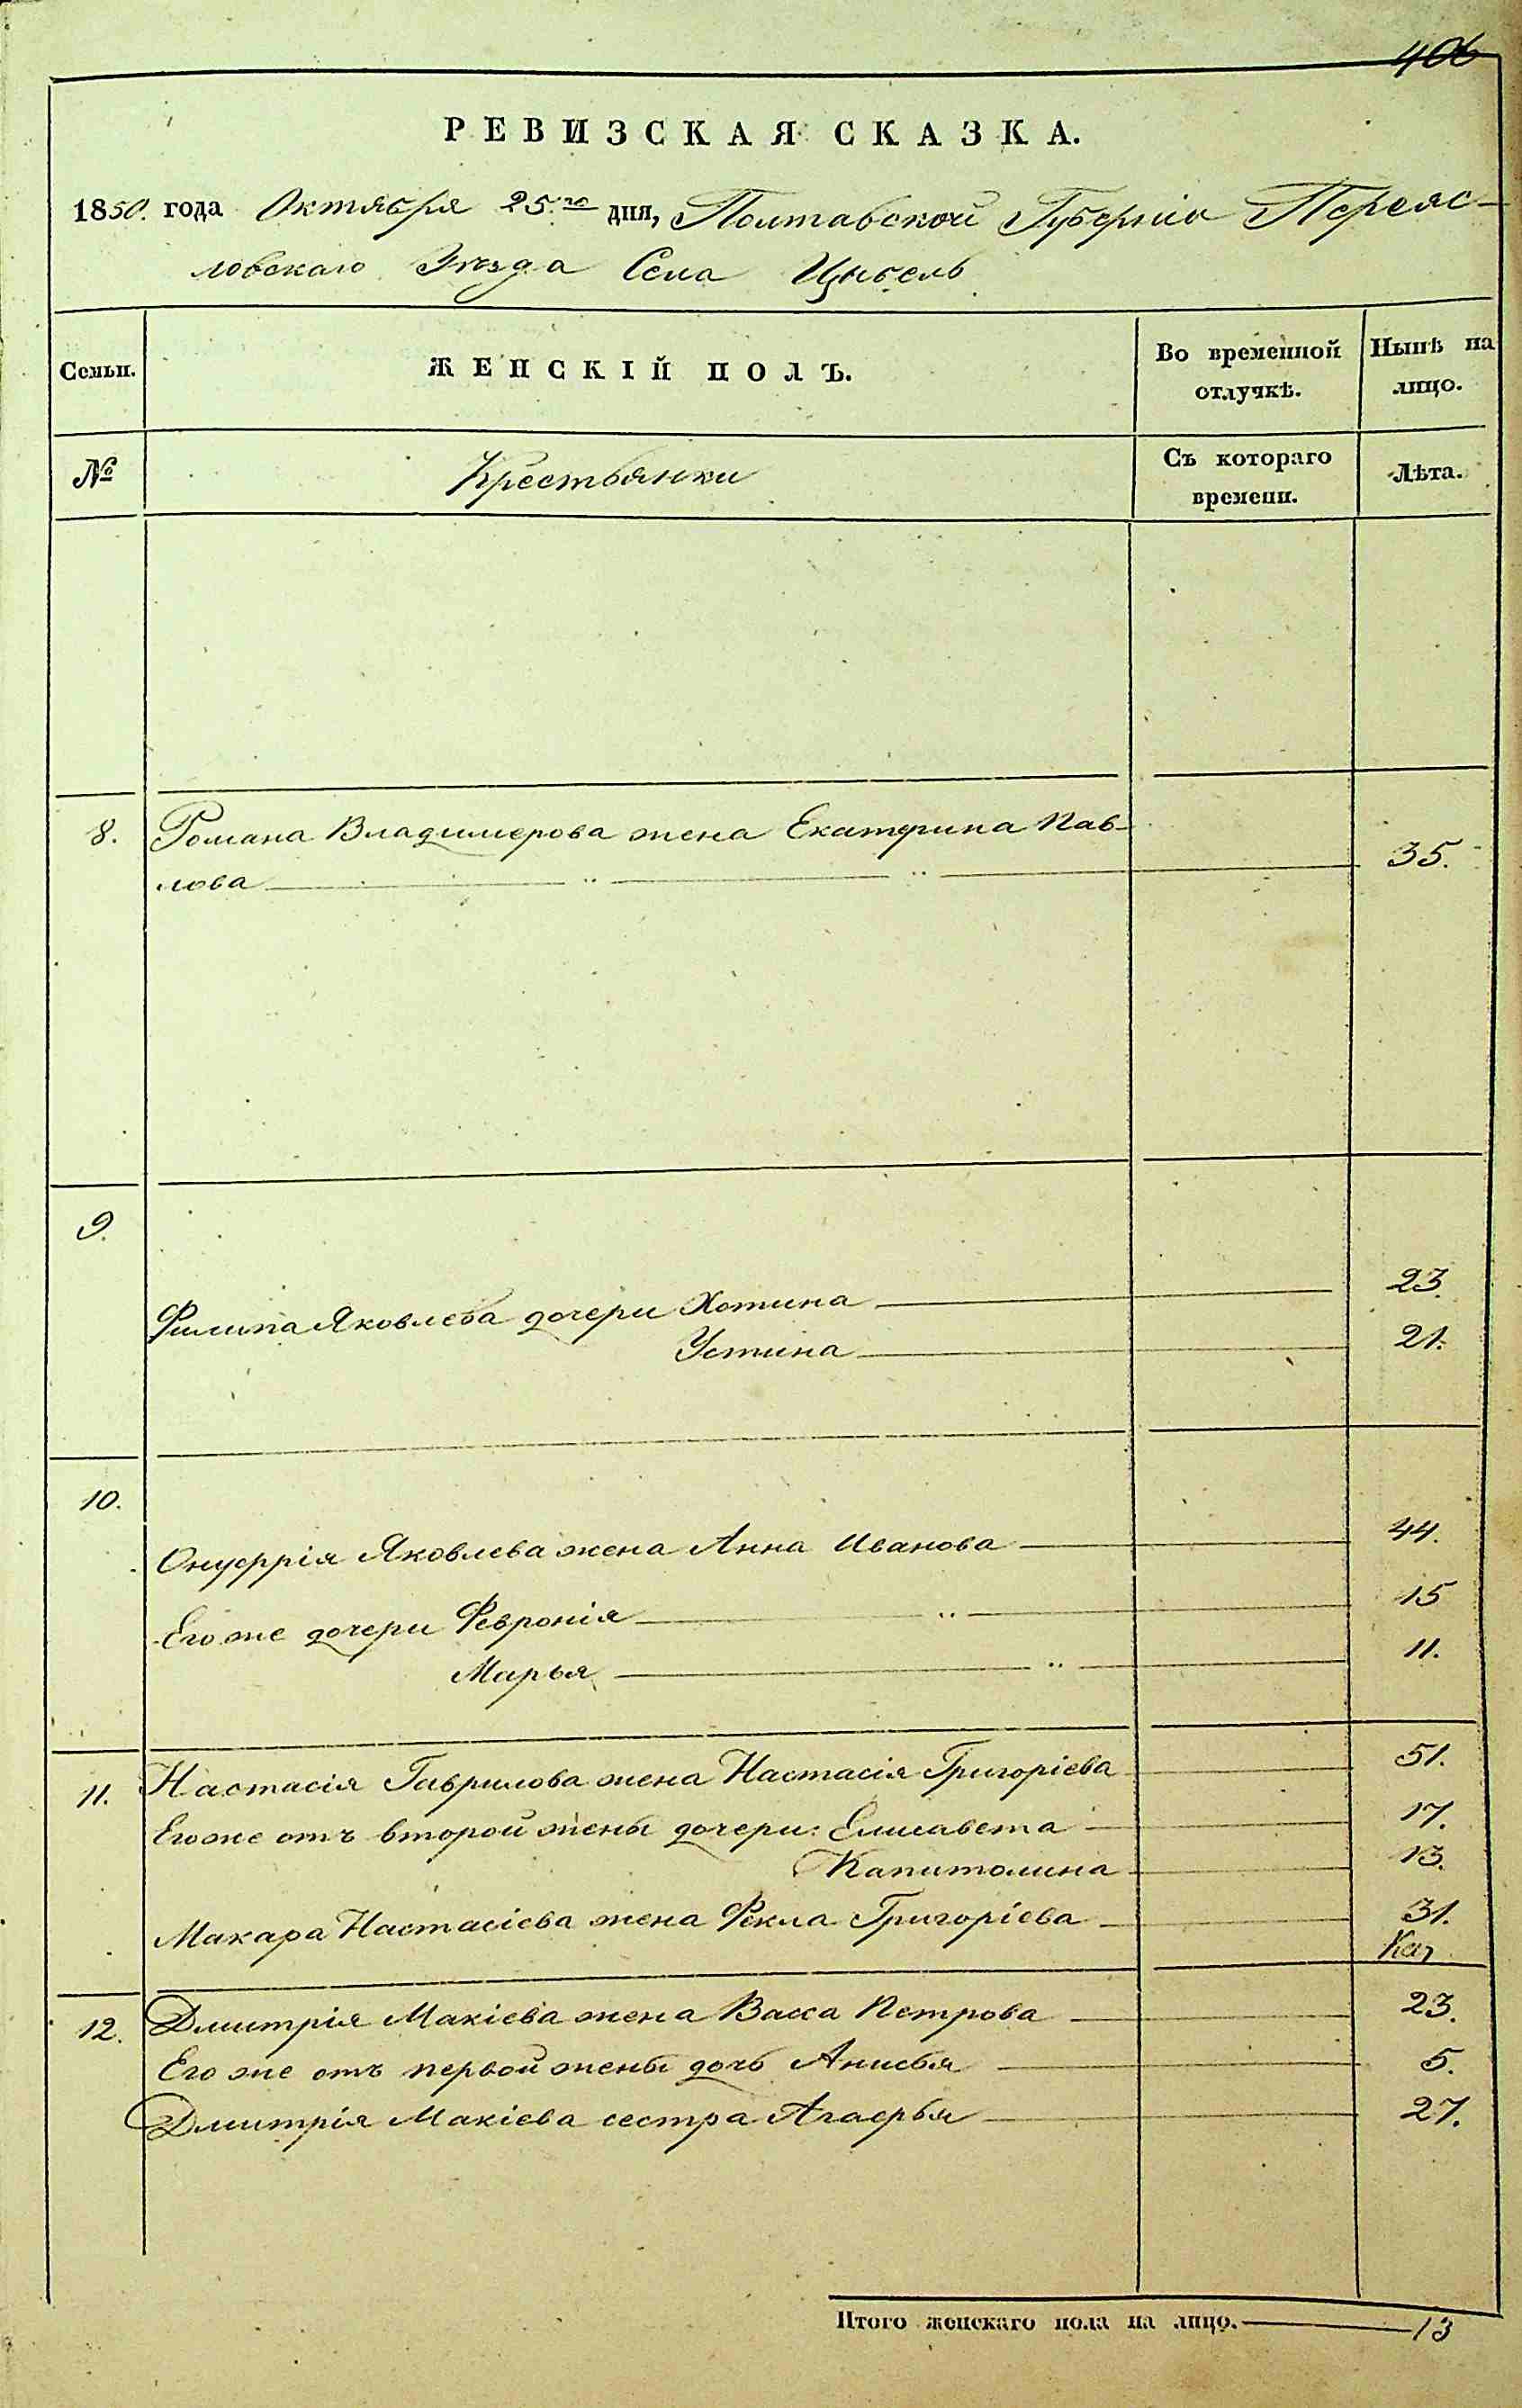 406
РЕВИЗСКАЯ СКАЗКА.
1850. года Октября 25.го дня, Полтавской Губерніи Переяс-
ловскаго Уезда Села Цыбель
Семьи. ЖЕНСКІЙ ПОЛЪ. Во временной отлучкѣ. Нынѣ на лицо.
№ Крестьянки Съ котораго времени. Лѣта.
8. Романа Владимерова жена Екатерина Пав-
лова 35.
9.
Филипа Яковлева дочери Хотина 23.
Устина 21.
10.
Онуфрія Яковлева жена Анна Иванова 44.
Его же дочери Февронія 15
Марья 11.
11. Настасія Гаврилова жена Настасія Григоріева 51.
Его же отъ второй жены дочери: Елисавета 17.
Капитолина 13.
Макара Настасіева жена Фекла Григоріева 31.
12. Дмитрія Макіева жена Васса Петрова 23.
Его же отъ первой жены дочь Анисья 5.
Дмитрія Макіева сестра Агафья 27.
Итого женскаго пола на лицо. 13